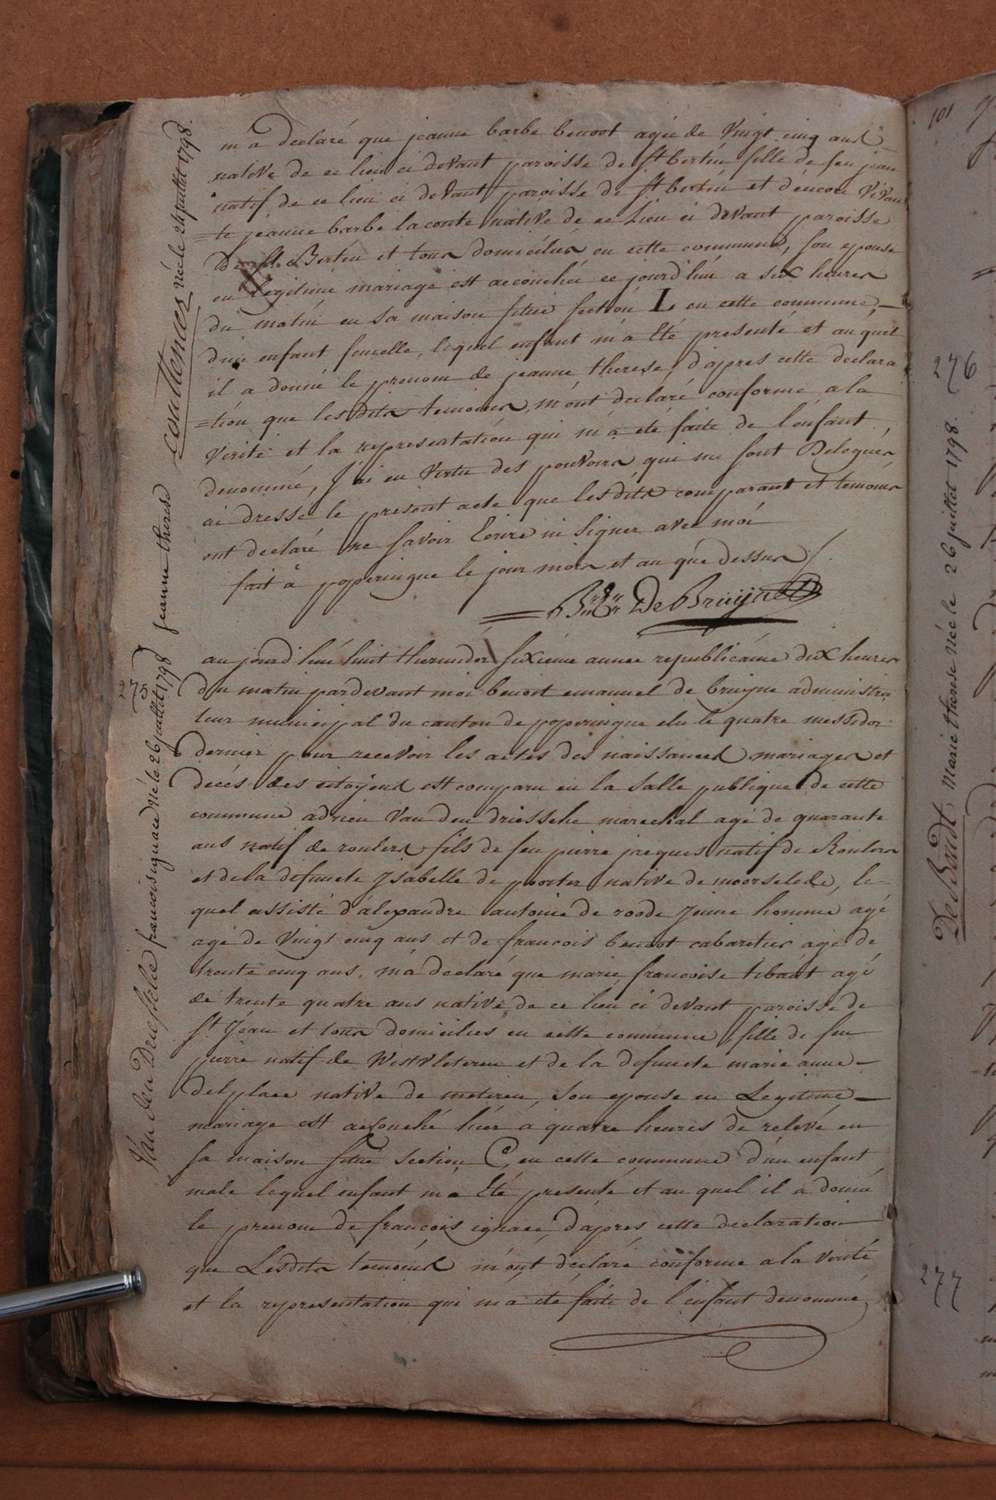 m'a declaré que jeanne barbe benoot agée de vingt cinq ans
native de ce lieu ci devant paroisse de st bertin fille de feu jean
natif de ce lieu ci devant paroisse de st bertin et d'encore vivan
=te jeanne barbe laconte native de ce lieu ci devant paroisse
de st Bertin et tous domiciliés en cette commune, son epouse
en Legitime mariage est accouchée ce jourd'hui a six heures
du matin en sa maison situé section L en cette commune,
d'un enfant femelle, lequel enfant m'a été presenté et au quel
il a donné le prenom de jeanne therese, d'apres cette declara
=tion que lesdits temoins, m'ont declaré conforme a la
verité et la representation qui m'a été faite de l'enfant
denommé, j'ai en vertu des pouvoirs qui me sont Delegués
ai dressé le present acte que lesdits comparant et temoins
ont declaré ne savoir Ecrire ni signer avec moi
fait à poperingue le jour mois et an que dessus
De Bruÿne
aujourd'hui huit thermidor sixieme année republicaine dix heures
du matin pardevant moi benoit emanuel de bruÿne administra
teur municipal du canton de poperingue elu le quatre messidor
dernier pour recevoir les actes des naissances mariages et
decés des citoyens est comparu en la salle publique de cette
commune adrien Van den driessche marechal agé de quarante
ans natif de roulers fils de feu pierre jacques natif de Roulers
et de la defuncte ysabelle de poorter native de moorselede, le
quel assisté d'alexandre antoine de roode jeune homme agé
agé de vingt cinq ans et de francois benoot cabaretier agé de
trente cinq ans, m'a declaré que marie francoise tibaut agé
de trente quatre ans native de ce lieu ci devant paroisse de
st Jean et tous domicilies en cette commune fille de feu
pierre natif de Westvleteren et de la defuncte marie anne
delplace native de meteren, son epouse en Legitime
mariage est accouché hier à quatre heures de relevé en
sa maison situé section C, en cette commune d'un enfant
male lequel enfant m'a été presenté et au quel il a donné
le prenom de francois ignace, d'apres cette declaration
que Lesdits temoins m'ont declaré conforme a la verité
et la representation qui m'a été faite de l'enfant denommé,
jeanne therese
née le
juillet 1798.
275
Van den Driessche francois ignace né le 26 juillet 1798
101
276
marie therese née le 26 juillet 1798.
277